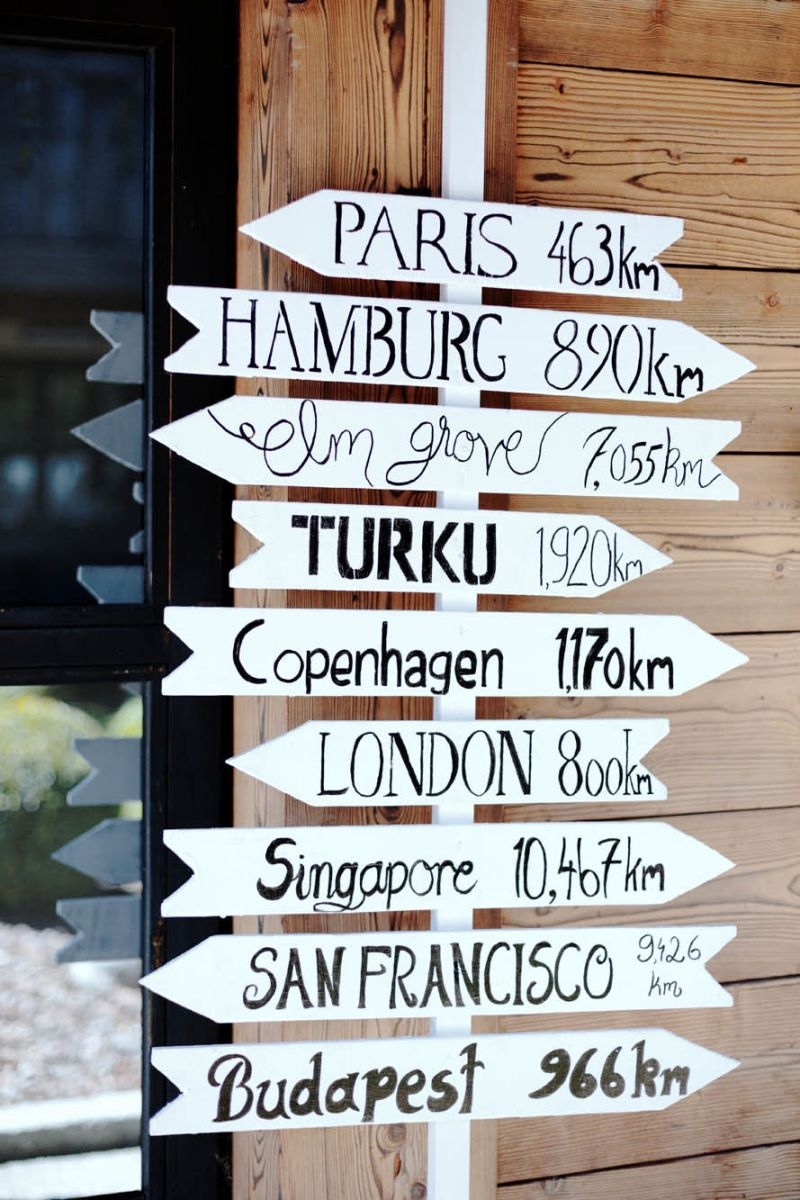 PARIS 463km
HAMBURG 890km
elm grove 7,055km
TURKU 1,920km
Copenhagen 1,170km
LONDON 800km
Singapore 10,467km
SAN FRANCISCO 9,426 km
Budapest 966km